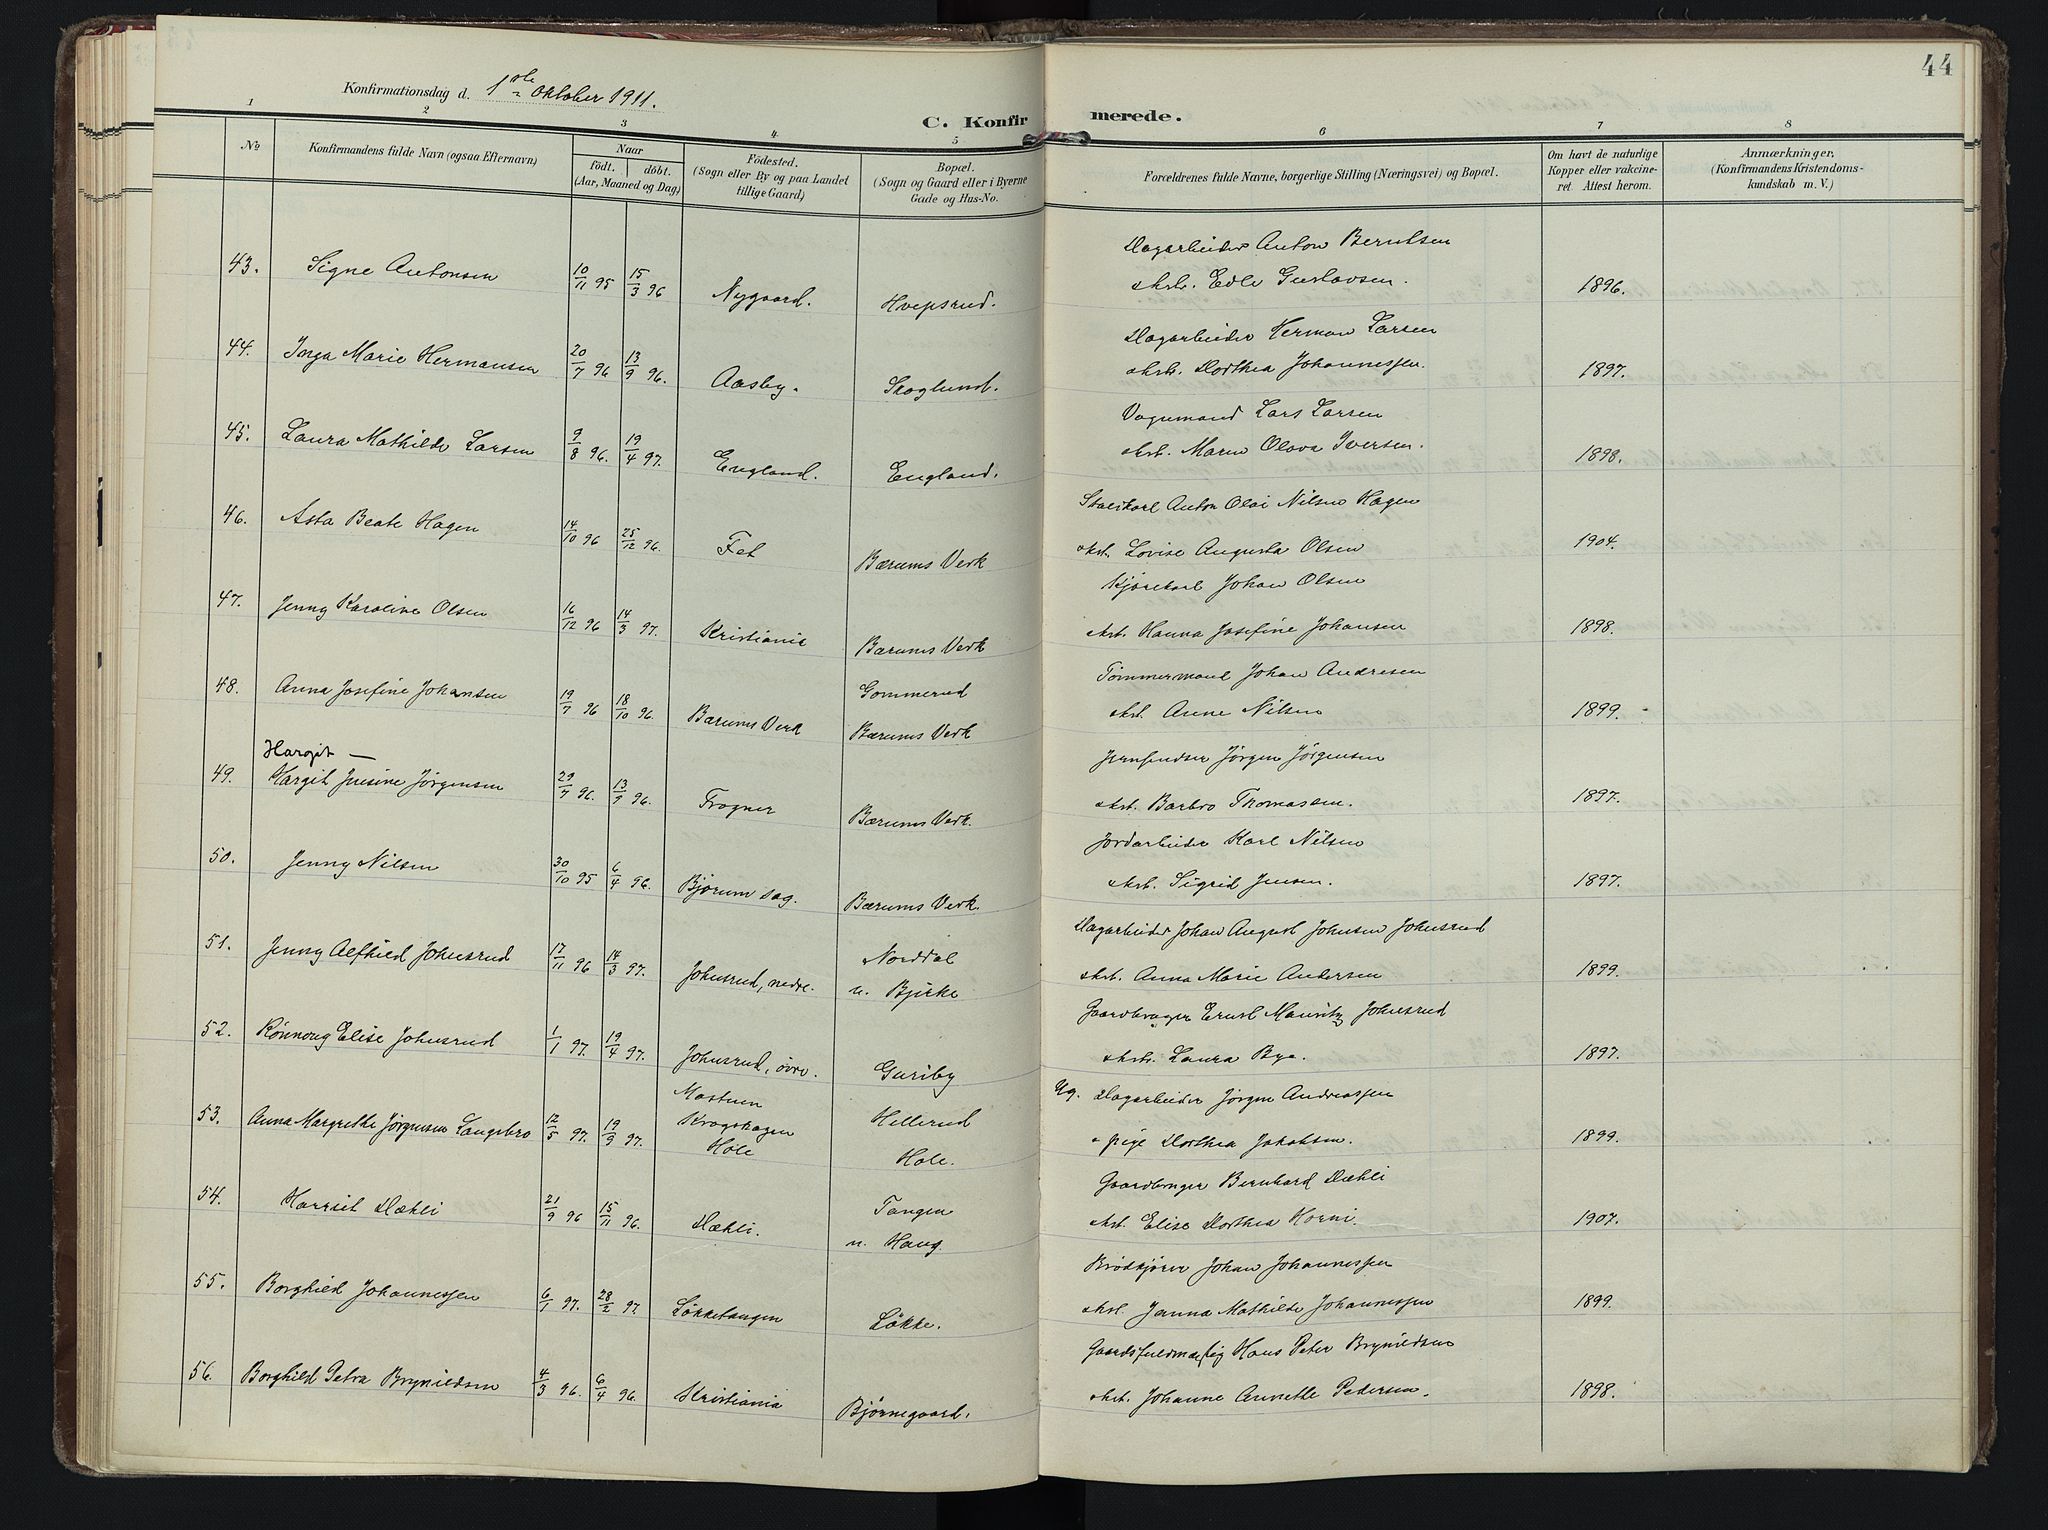 44
Konfirmationsdag d. 1ste Oktober 1911.
C. Konfirmerede.
1 2 3 4 5 6 7 8
No Konfirmandens fulde Navn (ogsaa Efternavn) Naar født. døbt. (Aar, Maaned og Dag) Fødested. (Sogn eller By og paa Landet tillige Gaard) Bopæl. (Sogn og Gaard eller i Byerne Gade og Hus-No. Forældrenes fulde Navne, borgerlige Stilling (Næringsvei) og Bopæl. Om havt de naturlige Kopper eller vakcineret. Attest herom. Anmærkninger. (Konfirmandens Kristendomskundskab m. V.)
Dagarbeider Anton Berntsen
43. Signe Antonsen 10/11 95 15/3 96 Nygaard. Hvepsrud. Edle Gustavsen. 1896.
Dagarbeider Herman Larsen
44. Inga Marie Hermansen 20/7 96 13/9 96. Aasby. Skoglund. Dorthea Johannessen. 1897.
Vognmand Lars Larsen
45. Laura Mathilde Larsen 9/8 96. 19/4 97. England. England. Maren Olava Iversen. 1898.
Staldkarl Anton Olai Nilsen Hagen
46. Asta Beate Hagen 14/10 96 25/12 96. Fet Bærums Verk Lovise Augusta Olsen 1904.
Kjørekarl Johan Olsen
47. Jenny Karoline Olsen 16/12 96 14/3 97. Kristiania Bærums Verk Hanna Josefine Johansen 1898.
Gommerud Tømmermand Johan Andresen
48. Anna Josefine Johansen 19/7 96 18/10 96. Bærums Verk Bærums Verk Anne Nilsen 1899.
Hargit — Jørgen Jørgensen
49. Hargit Jensine Jørgensen 29/7 96. 13/9 96. Frogner Bærums Verk. Barbro Thomassen. 1897.
Jordarbeider Karl Nilsen
50. Jenny Nilsen 30/10 95 6/4 96. Bjørum sag. Bærums Verk. Sigrid Jensen. 1897.
Norddal Dagarbeider Johan August Johnsen Johnsrud
51. Jenny Alfhild Johnsrud 17/11 96 14/3 97. Johnsrud, nedre. u. Bjerke Anna Marie Andersen 1899.
Gaardbruger Ernst Mauritz Johnsrud
52. Rønnoug Elise Johnsrud 1/1 97. 19/4 97. Johnsrud, øvre. Guriby Laura Bye. 1897.
Ug. Dagarbeider Jørgen Andreassen
53. Anna Margrethe Jørgensen Langebro 12/5 97. 19/9 97. Krogskogen Hole Hellerud Hole. pige Dorthea Jakobsen. 1899.
Tangen Gaardbruger Bernhard Dæhli
54. Harriet Dæhli 21/9 96 15/11 96. Dæhli. u. Haug. Elise Dorthea Horni. 1907.
Brødkjører Johan Johannessen
55. Borghild Johannessen 6/1 97. 28/2 97. Løkketangen Løkke. Janna Mathilde Johannessen 1899.
Hans Peter Brynildsen
56. Borghild Petra Brynildsen 4/3 96. 6/4 96. Kristiania Bjørnegaard. Johanne Annette Pedersen. 1898.